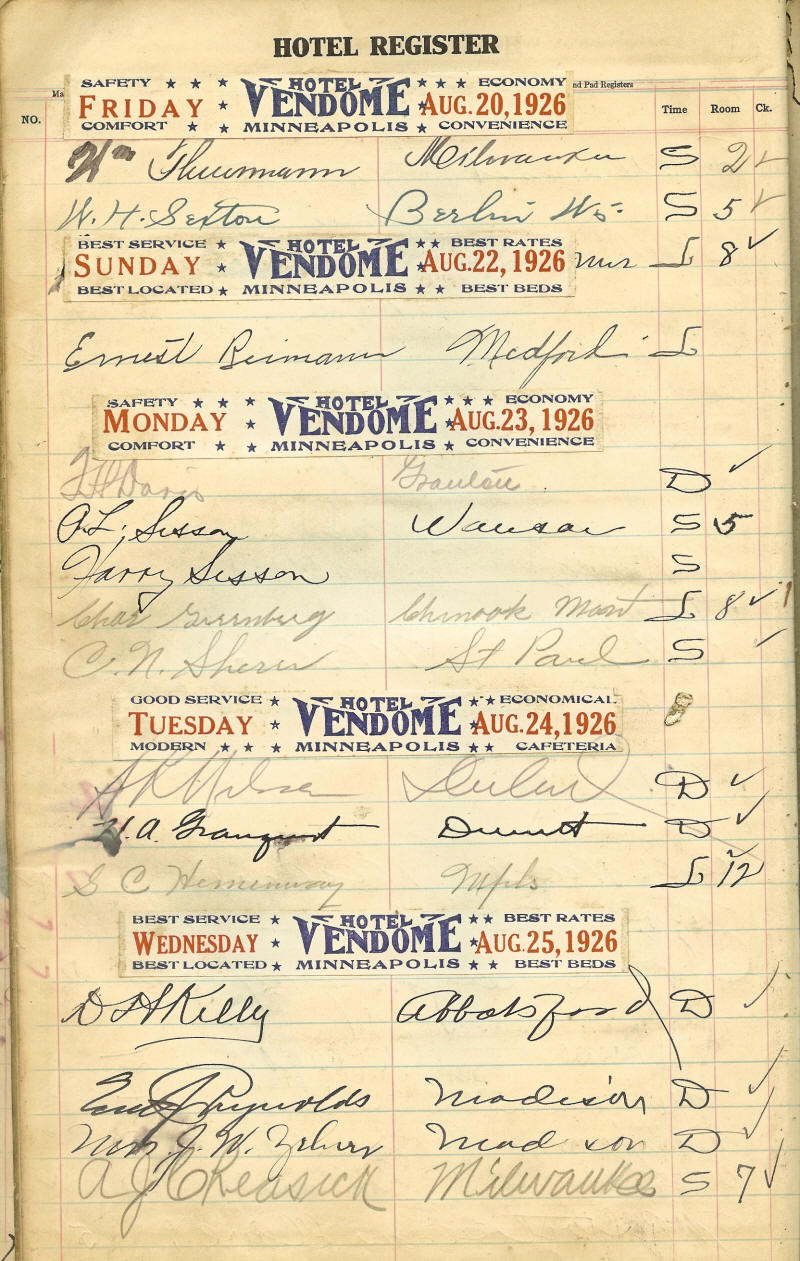 HOTEL REGISTER
nd Pad Registers
NO. Time Room Ck.
SAFETY ★ ★ ★ HOTEL ★ ★ ★ ECONOMY
FRIDAY ★ VENDOME ★ AUG. 20, 1926
COMFORT ★ ★ MINNEAPOLIS ★ CONVENIENCE
Wm Milwaukee S 2 ✓
W. H. Sexton Berlin Wis. S 5 ✓
BEST SERVICE ★ HOTEL ★★ BEST RATES
SUNDAY ★ VENDOME ★ AUG. 22, 1926 L 8 ✓
BEST LOCATED ★ MINNEAPOLIS ★ ★ BEST BEDS
Ernest Reimann Medford L
SAFETY ★ ★ ★ HOTEL ★ ★ ★ ECONOMY
MONDAY ★ VENDOME ★ AUG. 23, 1926
COMFORT ★ ★ MINNEAPOLIS ★ CONVENIENCE
Davis D ✓
A. L. Sisson Wausau S 5
Harry Sisson S
Chas Greenberg Chinook Mont L 8 ✓
C. N. Sherer St Paul S ✓
GOOD SERVICE ★ HOTEL ★ ★ ECONOMICAL
TUESDAY ★ VENDOME ★ AUG. 24, 1926
MODERN ★ ★ ★ MINNEAPOLIS ★★ CAFETERIA
D ✓
H. A. Granquist D ✓
G C Hemenway Mpls L 12 ✓
BEST SERVICE ★ HOTEL ★★ BEST RATES
WEDNESDAY ★ VENDOME ★ AUG. 25, 1926
BEST LOCATED ★ MINNEAPOLIS ★ ★ BEST BEDS
D H Kelly Abbotsford D ✓
Reynolds Madison D ✓
Mrs J. W. Madison D ✓
A J Milwaukee S 7 ✓